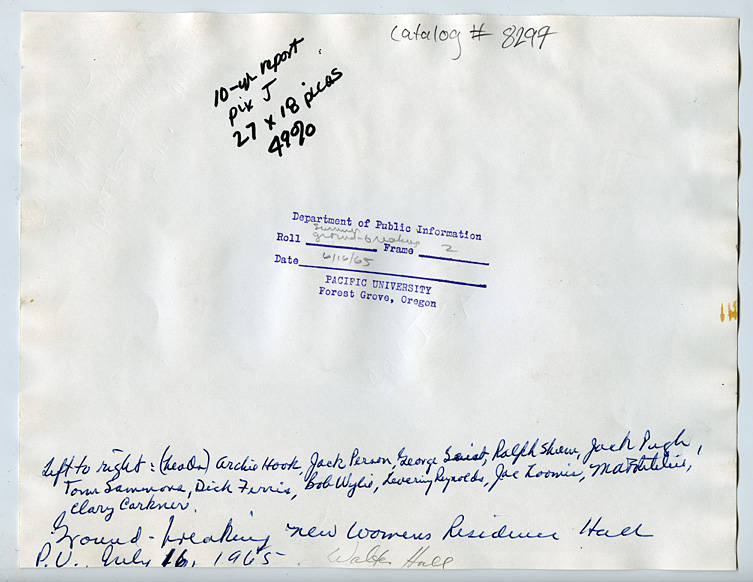 Catalog # 8297
10-yr report
pix J
27 x 18 picas
49%
Department of Public Information
Roll Summer ground-breaking Frame 2
Date 6/16/65
PACIFIC UNIVERSITY
Forest Grove, Oregon
Left to right: (heads) Archie Hook, Jack Person, George Ralph Shaw, Jack Pugh,
Tom Sammons, Dick Ferris, Bob Wylie, Levering Reynolds, Joe Loomis,
Clary Carkner.
Ground-breaking new Womens Residence Hall
P.U. July 16, 1965. Walter Hall